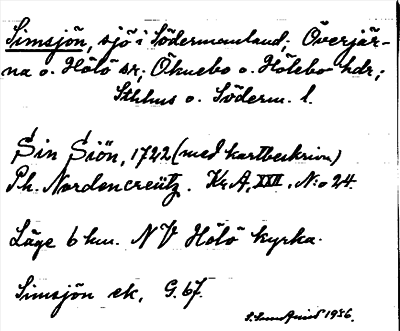 Simsjön, sjö i Södermanland; Överjär-
na o. Hölö sr; Öknebo o. Hölebo hdr;
Sthlms o. Söderm. l.
Sin Siön, 1722 (med kartbeskrivn)
Ph. Nordencreütz. Kr. A, XXII. N:o 24.
Läge 6 km. NV Hölö kyrka.
Simsjön ek, G. 67.
1936.